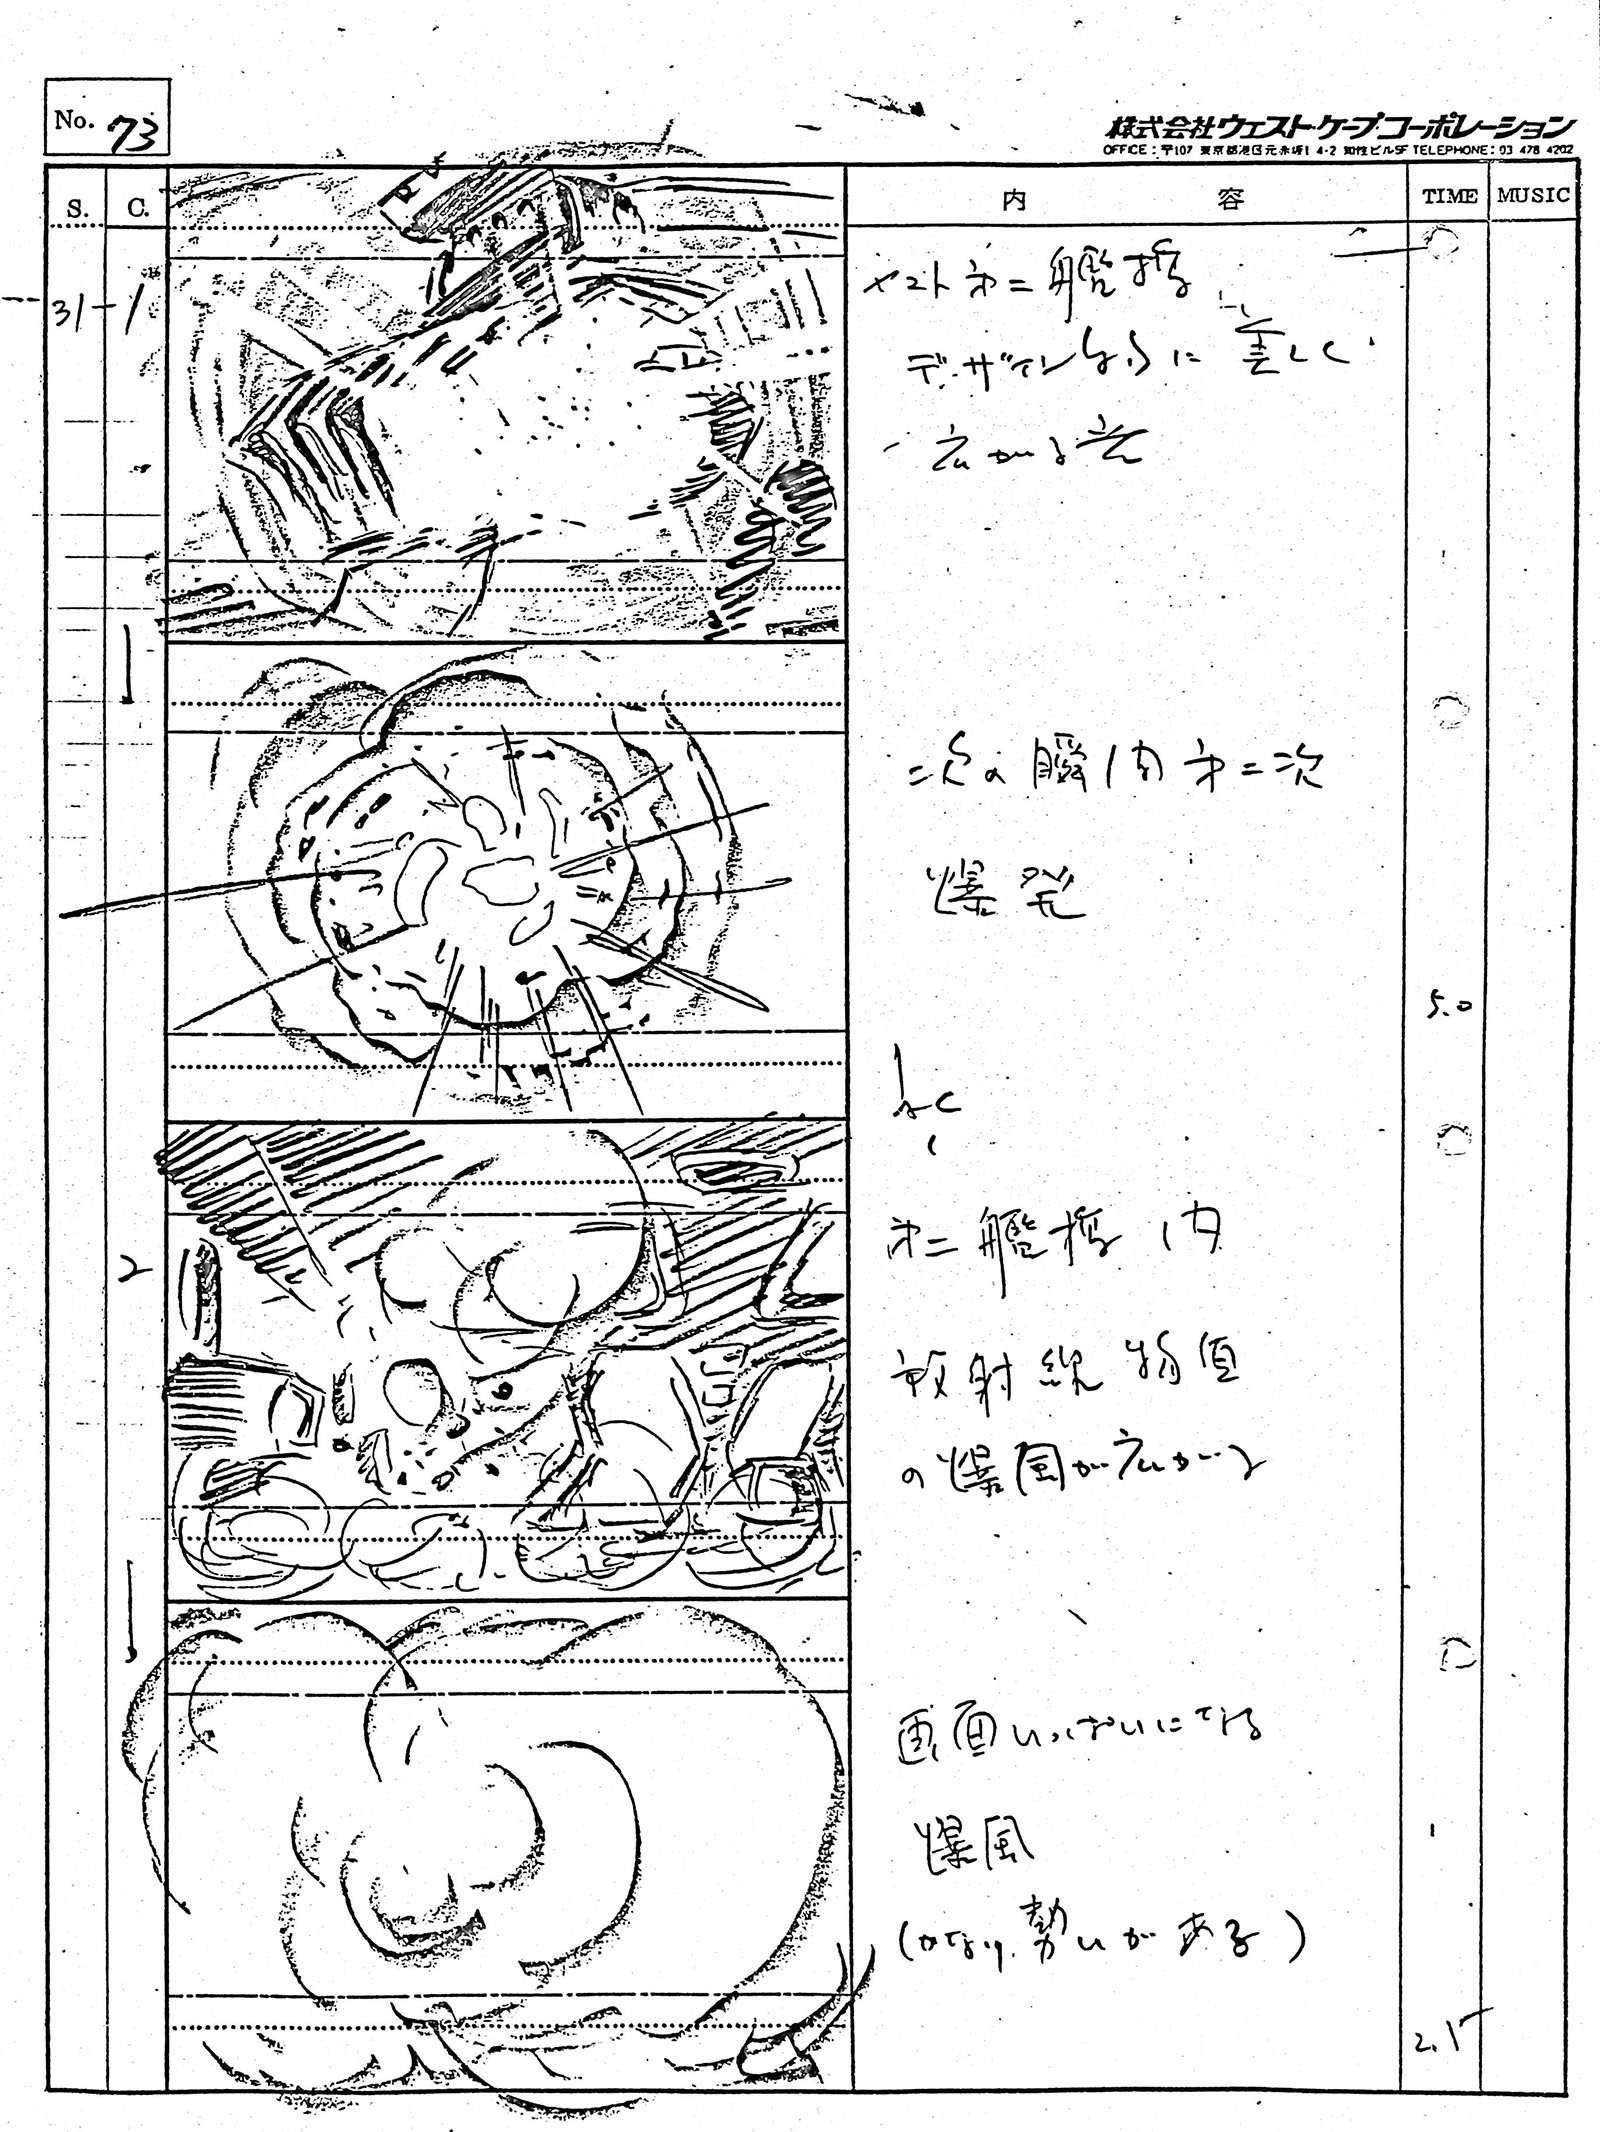 No. 73
株式会社ウェスト・ケープ・コーポレーション
OFFICE：〒107 東京都港区元赤坂1-4-2 知性ビル5F TELEPHONE：03 478 4202
S. C. 内 容 TIME MUSIC
31-1
ヤマト第二艦橋
デザイン的に美しく
広がる光
次の瞬間第二次
爆発
5.0
2
第二艦橋内
放射線物質
の爆風が広がる
画面いっぱいになる
爆風
(かなり勢いがある)
2.15